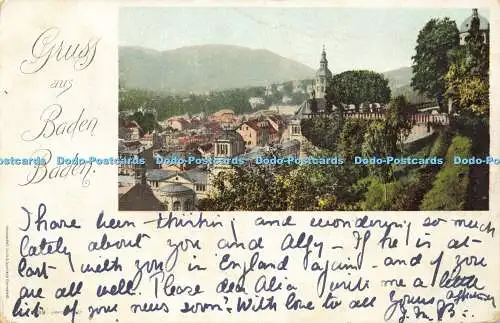 Gruss
aus
Baden
Baden.
Dodo-Postcards Dodo-Postcards Dodo-Postcards Dodo-Postcards Dodo-Postcards Dodo-Postcards
I have been thinking, and wondering so much
lately about you and Alfy - If he is at-
last with you in England again - and if you
are all well. Please dear Alia write me a little
bit of your news soon? With love to all yours
J.M.B.